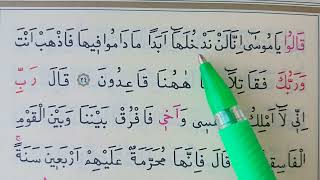 قَالُوا يَامُوسٰٓى اِنَّا لَنْ نَدْخُلَهَٓا اَبَدًا مَا دَامُوا فٖيهَا فَاذْهَبْ اَنْتَ
وَرَبُّكَ فَقَاتِلَٓا هٰهُنَا قَاعِدُونَ ٢٤ قَالَ رَبِّ
اِنّٖى لَٓا اَمْلِكُ وَاَخٖى فَافْرُقْ بَيْنَنَا وَبَيْنَ الْقَوْمِ
الْفَاسِقٖينَ قَالَ فَاِنَّهَا مُحَرَّمَةٌ عَلَيْهِمْ اَرْبَعٖينَ سَنَةًۚ